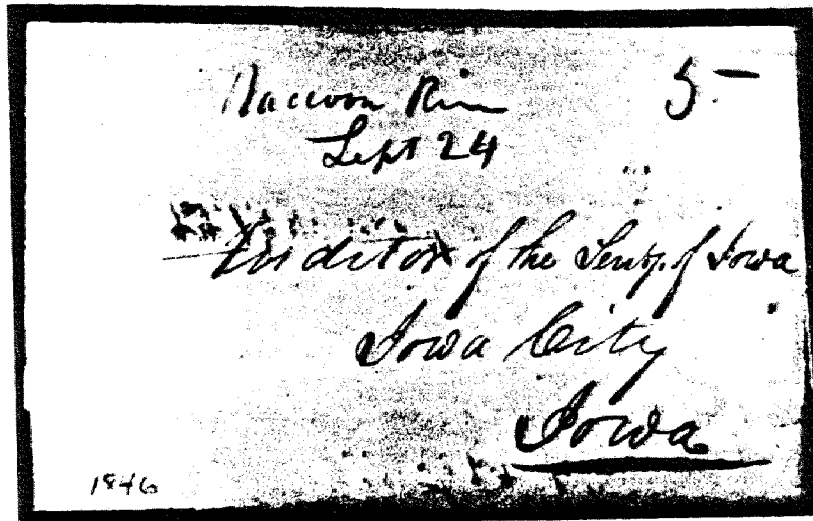 Raccoon River 5.—
Sept 24
Auditor of the Terry. of Iowa
Iowa City
Iowa
1846